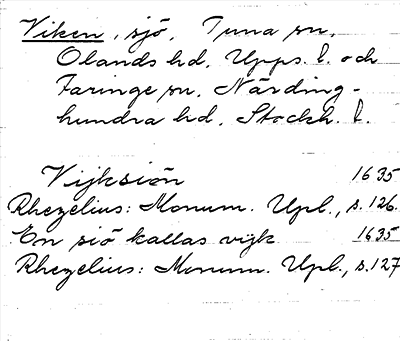 Viken, sjö, Tuna sn,
Olands hd, Upps. l. och
Faringe sn, Närding-
hundra hd, Stockh. l.
Vijksiön 1635
Rhezelius: Monum. Upl., s. 126.
En siö kallas vijk 1635
Rhezelius: Monum. Upl., s. 127